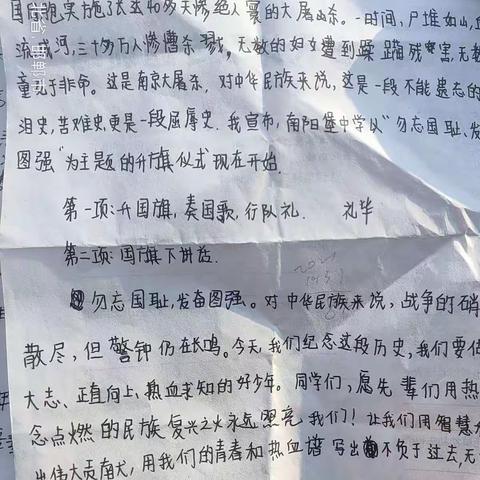 国同胞实施了长达40多天惨绝人寰的大屠杀。一时间,尸堆如山,血
流成河,三十多万人惨遭杀戮,无数的妇女遭到蹂躏残害,无数
童死于非命。这是南京大屠杀,对中华民族来说,这是一段不能遗忘的
泪史,苦难史,更是一段屈辱史。我宣布,南阳堡中学以“勿忘国耻、发
图强”为主题的升旗仪式现在开始.
第一项:升国旗,奏国歌,行队礼. 礼毕
第二项:国旗下讲话.
勿忘国耻,发奋图强。对中华民族来说,战争的硝
散尽,但警钟仍在长鸣。今天,我们纪念这段历史,我们要做
大志、正直向上、热血求知的好少年。同学们,愿先辈们用热
念点燃的民族复兴之火永远照亮我们!让我们用智慧
出伟大贡献,用我们的青春和热血谱写出不负于过去,无